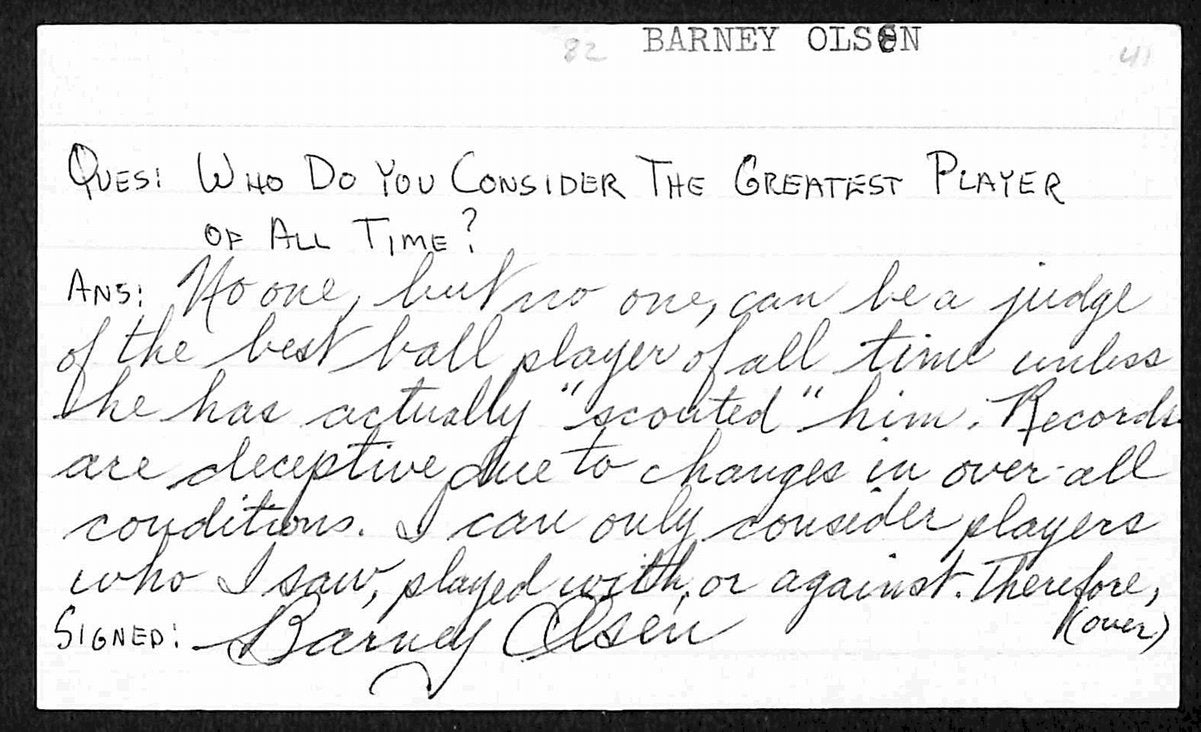 82 BARNEY OLSEN 41
QUES: WHO DO YOU CONSIDER THE GREATEST PLAYER
OF ALL TIME?
ANS: No one, but no one, can be a judge
of the best ball player of all time unless
he has actually "scouted" him. Records
are deceptive due to changes in over-all
conditions. I can only consider players
who I saw, played with, or against. Therefore,
(over)
SIGNED: Barney Olsen